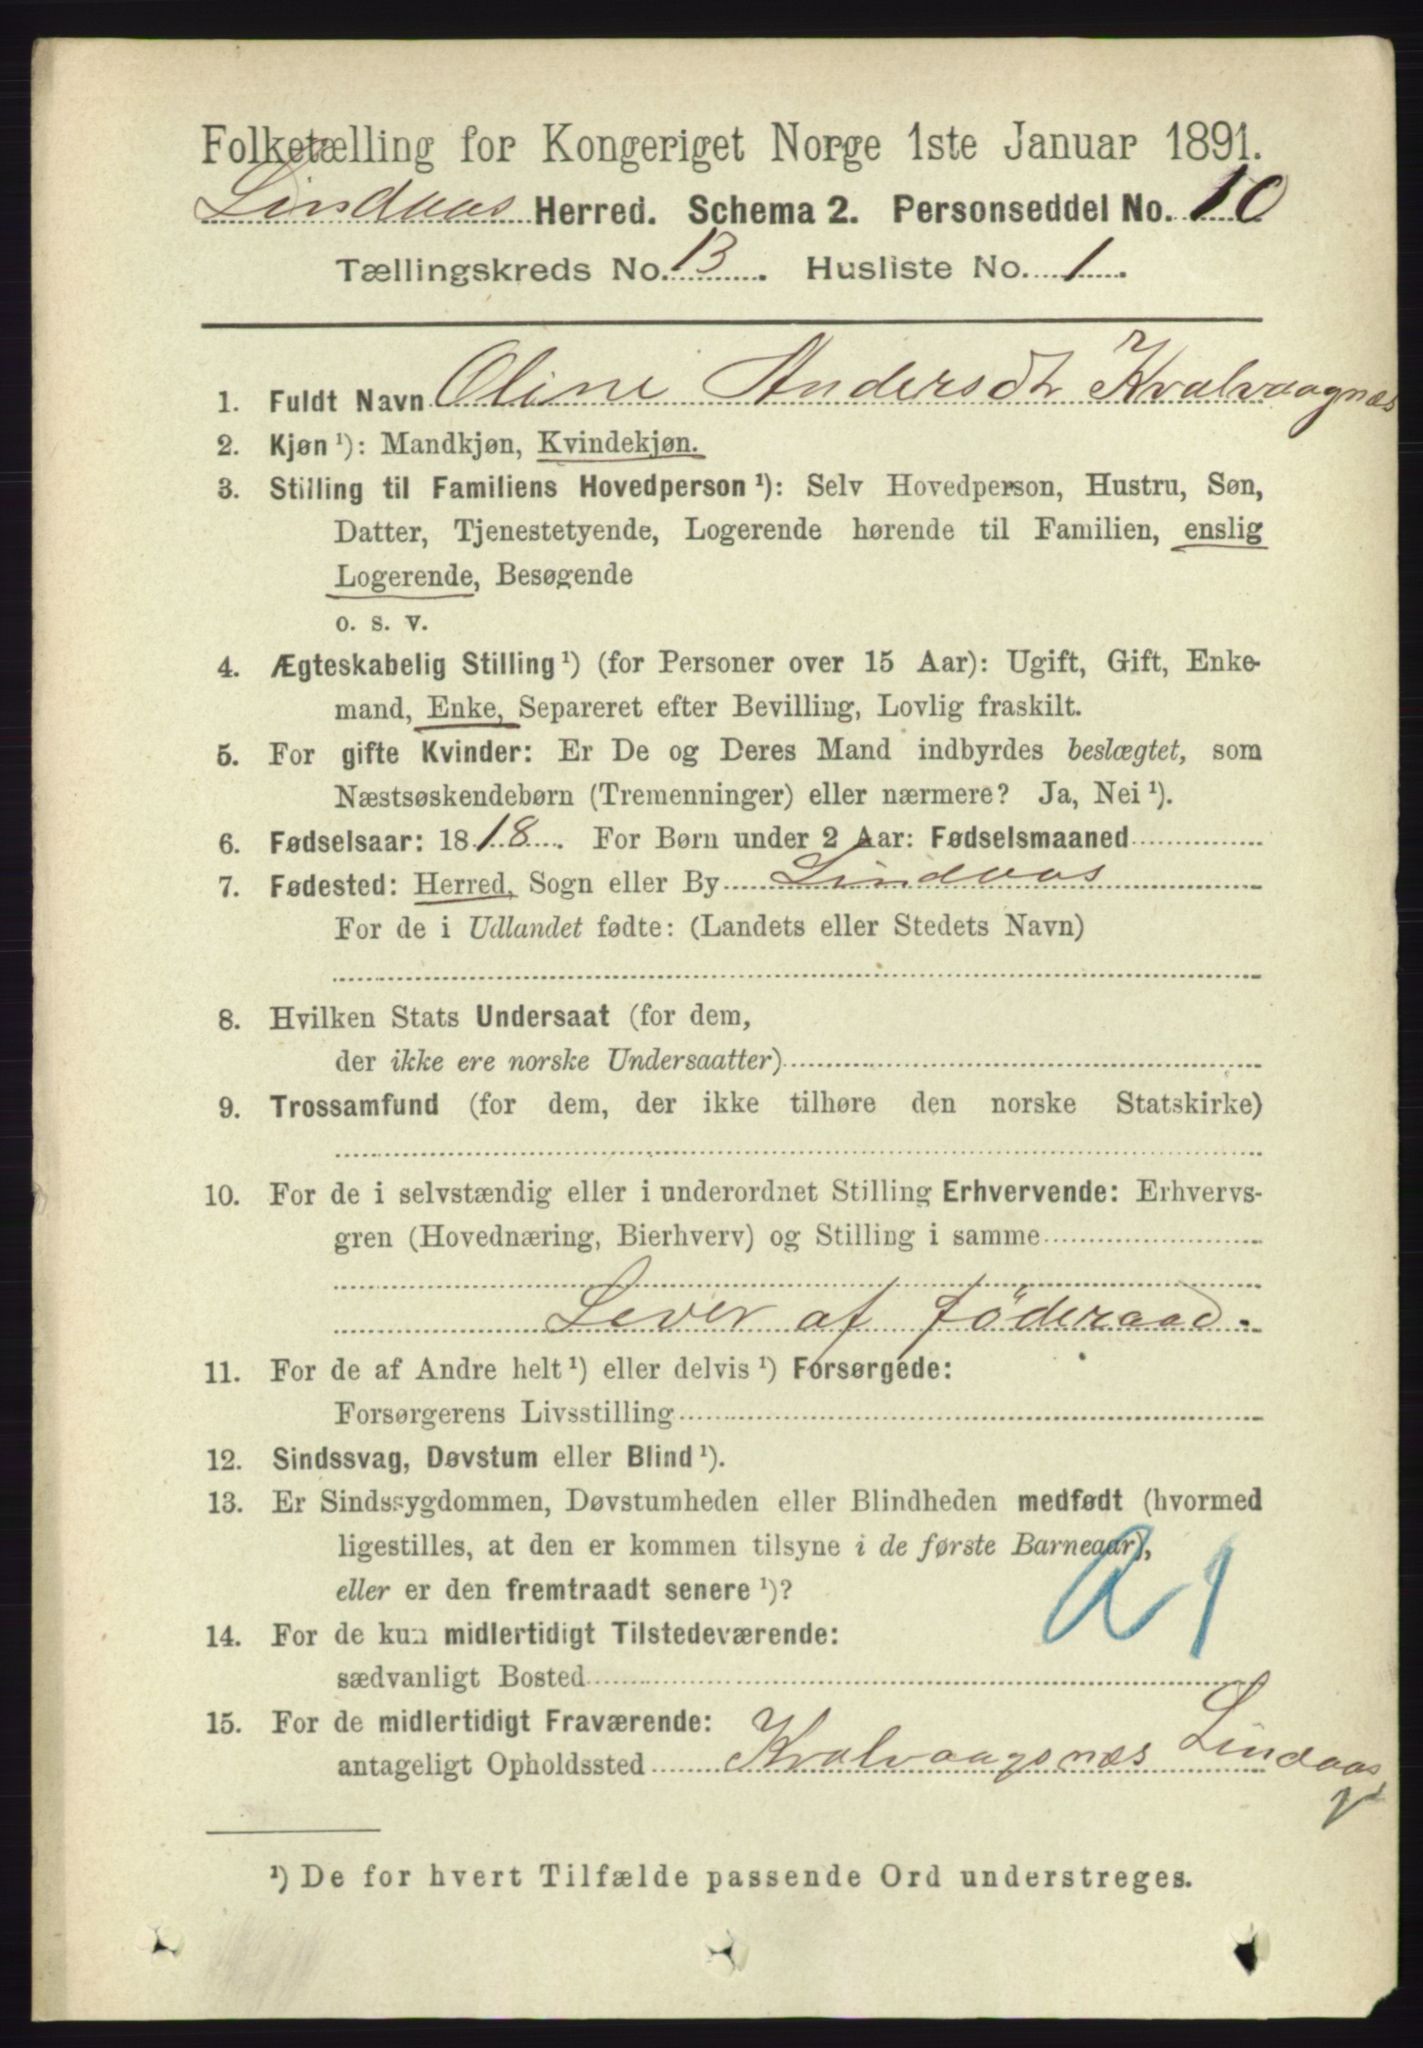 Folketælling for Kongeriget Norge 1ste Januar 1891.
Lindaas Herred. Schema 2. Personseddel No. 10
Tællingskreds No. 13. Husliste No. 1.
1. Fuldt Navn Oline Andersdtr Kvalvaagnæs
2. Kjøn ¹): Mandkjøn, Kvindekjøn.
3. Stilling til Familiens Hovedperson ¹): Selv Hovedperson, Hustru, Søn,
Datter, Tjenestetyende, Logerende hørende til Familien, enslig
Logerende, Besøgende
o. s. v.
4. Ægteskabelig Stilling ¹) (for Personer over 15 Aar): Ugift, Gift, Enke-
mand, Enke, Separeret efter Bevilling, Lovlig fraskilt.
5. For gifte Kvinder: Er De og Deres Mand indbyrdes beslægtet, som
Næstsøskendebørn (Tremenninger) eller nærmere? Ja, Nei ¹).
6. Fødselsaar: 1818. For Børn under 2 Aar: Fødselsmaaned
7. Fødested: Herred, Sogn eller By Lindaas
For de i Udlandet fødte: (Landets eller Stedets Navn)
8. Hvilken Stats Undersaat (for dem,
der ikke ere norske Undersaatter)
9. Trossamfund (for dem, der ikke tilhøre den norske Statskirke)
10. For de i selvstændig eller i underordnet Stilling Erhvervende: Erhvervs-
gren (Hovednæring, Bierhverv) og Stilling i samme
Lever af föderaad.
11. For de af Andre helt ¹) eller delvis ¹) Forsørgede:
Forsørgerens Livsstilling
12. Sindssvag, Døvstum eller Blind ¹).
13. Er Sindssygdommen, Døvstumheden eller Blindheden medfødt (hvormed
ligestilles, at den er kommen tilsyne i de første Barneaar),
eller er den fremtraadt senere ¹)?
14. For de kun midlertidigt Tilstedeværende:
sædvanligt Bosted
15. For de midlertidigt Fraværende:
antageligt Opholdssted Kvalvaagsnæs Lindaas
¹) De for hvert Tilfælde passende Ord understreges.